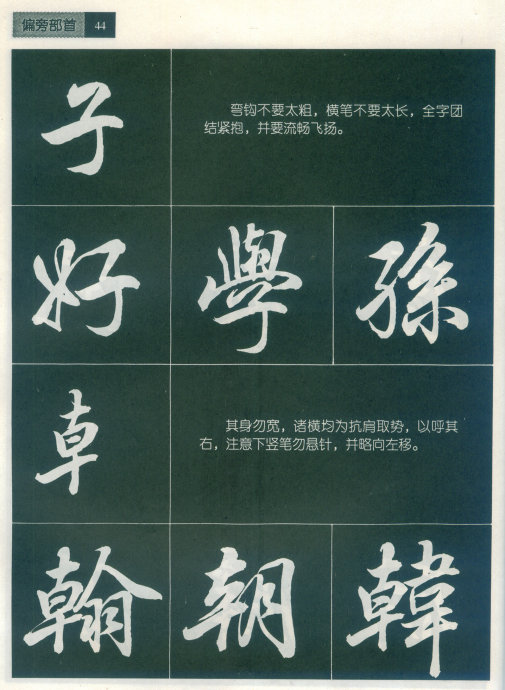 偏旁部首 44
子
弯钩不要太粗，横笔不要太长，全字团
结紧抱，并要流畅飞扬。
好 學 孫
卓
其身勿宽，诸横均为抗肩取势，以呼其
右，注意下竖笔勿悬针，并略向左移。
翰 朝 韓